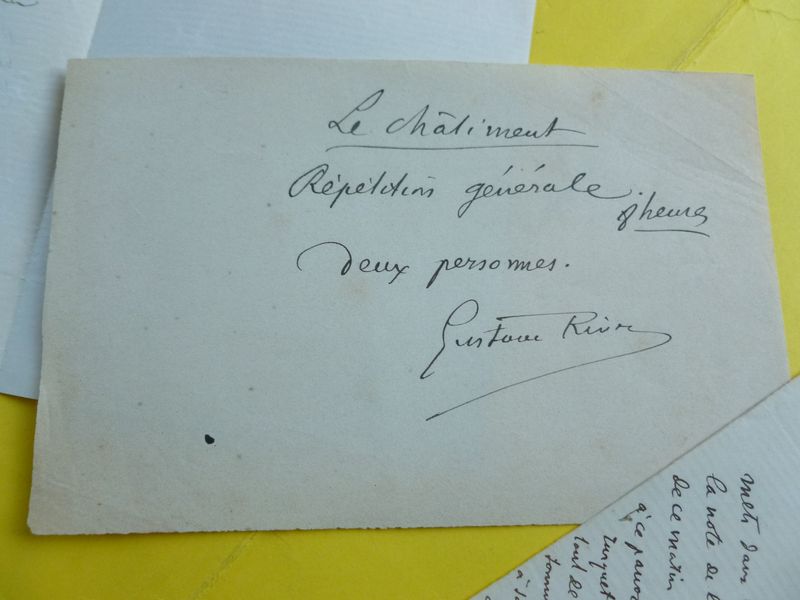 Le Châtiment
Répétition générale.
8 heures
Deux personnes.
Gustave Rivet
Mets dans
la note de l
de ce matin
q'ce pauv
tout de
à s